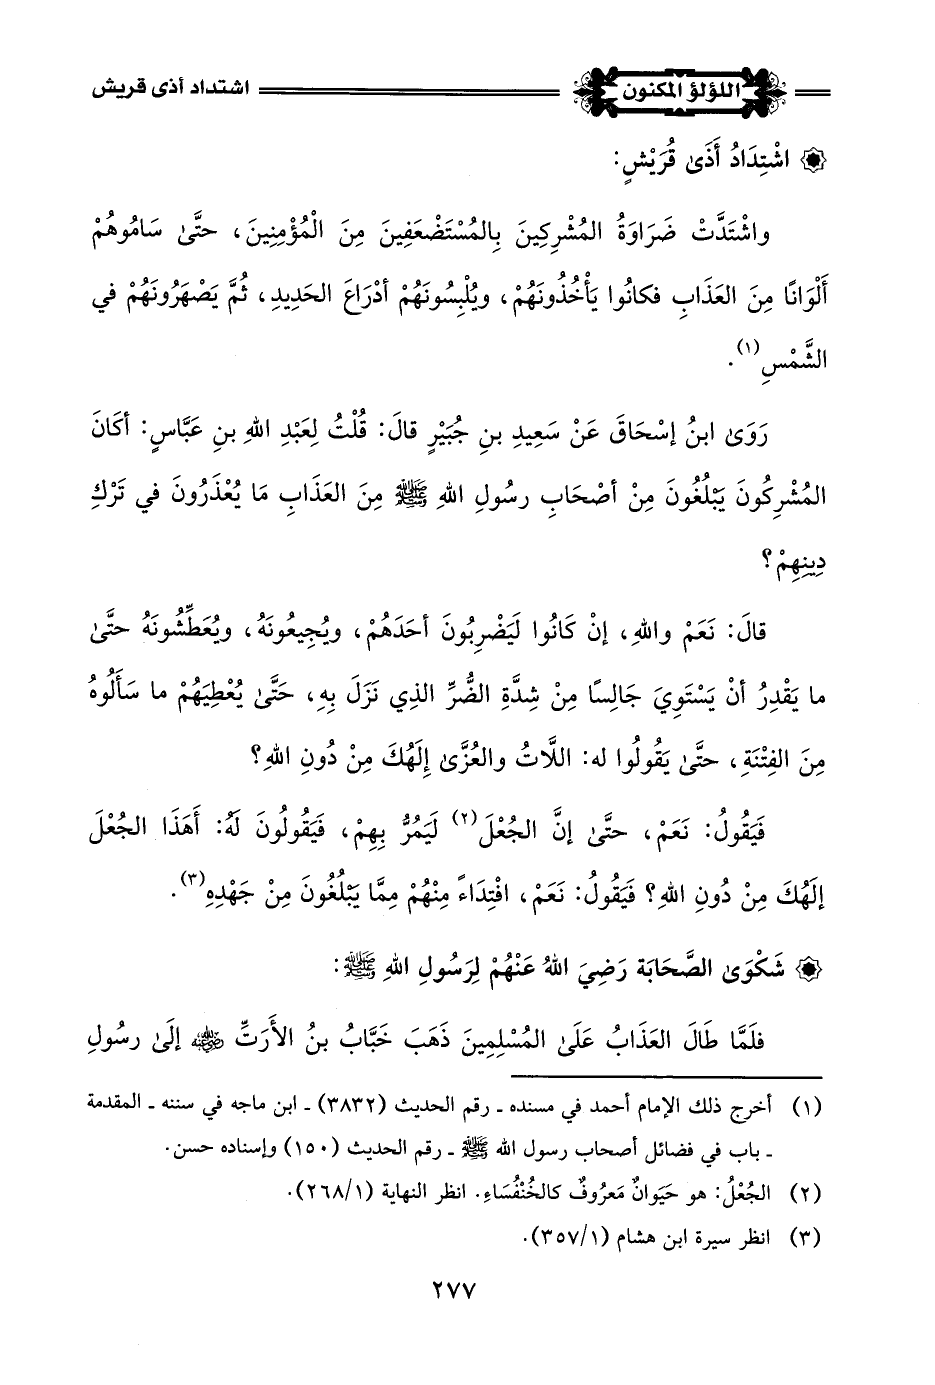 اللؤلؤ المكنون اشتداد أذى قريش
اشْتِدَادُ أَذَىٰ قُرَيْشٍ:
واشْتَدَّتْ ضَرَاوَةُ المُشْرِكِينَ بِالمُسْتَضْعَفِينَ مِنَ الْمُؤْمِنِينَ، حتَّىٰ سَامُوهُمْ
أَلْوَانًا مِنَ العَذَابِ فكانُوا يَأْخُذُونَهُمْ، ويُلْبِسُونَهُمْ أدْرَاعَ الحَدِيدِ، ثُمَّ يَصْهَرُونَهُمْ في
الشَّمْسِ(١).
رَوَىٰ ابنُ إسْحَاقَ عَنْ سَعِيدِ بنِ جُبَيْرٍ قالَ: قُلْتُ لِعَبْدِ اللهِ بنِ عَبَّاسٍ: أكَانَ
المُشْرِكُونَ يَبْلُغُونَ مِنْ أصْحَابِ رسُولِ اللهِ ﷺ مِنَ العَذَابِ مَا يُعْذَرُونَ في تَرْكِ
دِينِهِمْ؟
قالَ: نَعَمْ واللهِ، إنْ كَانُوا لَيَضْرِبُونَ أحَدَهُمْ، ويُجِيعُونَهُ، ويُعَطِّشُونَهُ حتَّىٰ
ما يَقْدِرُ أنْ يَسْتَوِيَ جَالِسًا مِنْ شِدَّةِ الضُّرِّ الذِي نَزَلَ بِهِ، حَتَّىٰ يُعْطِيَهُمْ ما سَأَلُوهُ
مِنَ الفِتْنَةِ، حتَّىٰ يَقُولُوا له: اللَّاتُ والعُزَّىٰ إِلَهُكَ مِنْ دُونِ اللهِ؟
فَيَقُولُ: نَعَمْ، حتَّىٰ إنَّ الجُعْلَ(٢) لَيَمُرُّ بِهِمْ، فَيَقُولُونَ لَهُ: أَهَذَا الجُعْلَ
إلَهُكَ مِنْ دُونِ اللهِ؟ فَيَقُولُ: نَعَمْ، افْتِدَاءً مِنْهُمْ مِمَّا يَبْلُغُونَ مِنْ جَهْدِهِ(٣).
شَكْوَىٰ الصَّحَابَة رَضِيَ اللهُ عَنْهُمْ لِرَسُولِ اللهِ ﷺ:
فلَمَّا طَالَ العَذَابُ عَلَىٰ المُسْلِمِينَ ذَهَبَ خَبَّابُ بنُ الأَرَتِّ رضي الله عنه إلَىٰ رسُولِ
(١) أخرج ذلك الإمام أحمد في مسنده ـ رقم الحديث (٣٨٣٢) ـ ابن ماجه في سننه ـ المقدمة
ـ باب في فضائل أصحاب رسول الله ﷺ ـ رقم الحديث (١٥٠) وإسناده حسن.
(٢) الجُعْلُ: هو حَيَوانٌ مَعرُوفٌ كالخُنْفُسَاءِ. انظر النهاية (٢٦٨/١).
(٣) انظر سيرة ابن هشام (٣٥٧/١).
٢٧٧